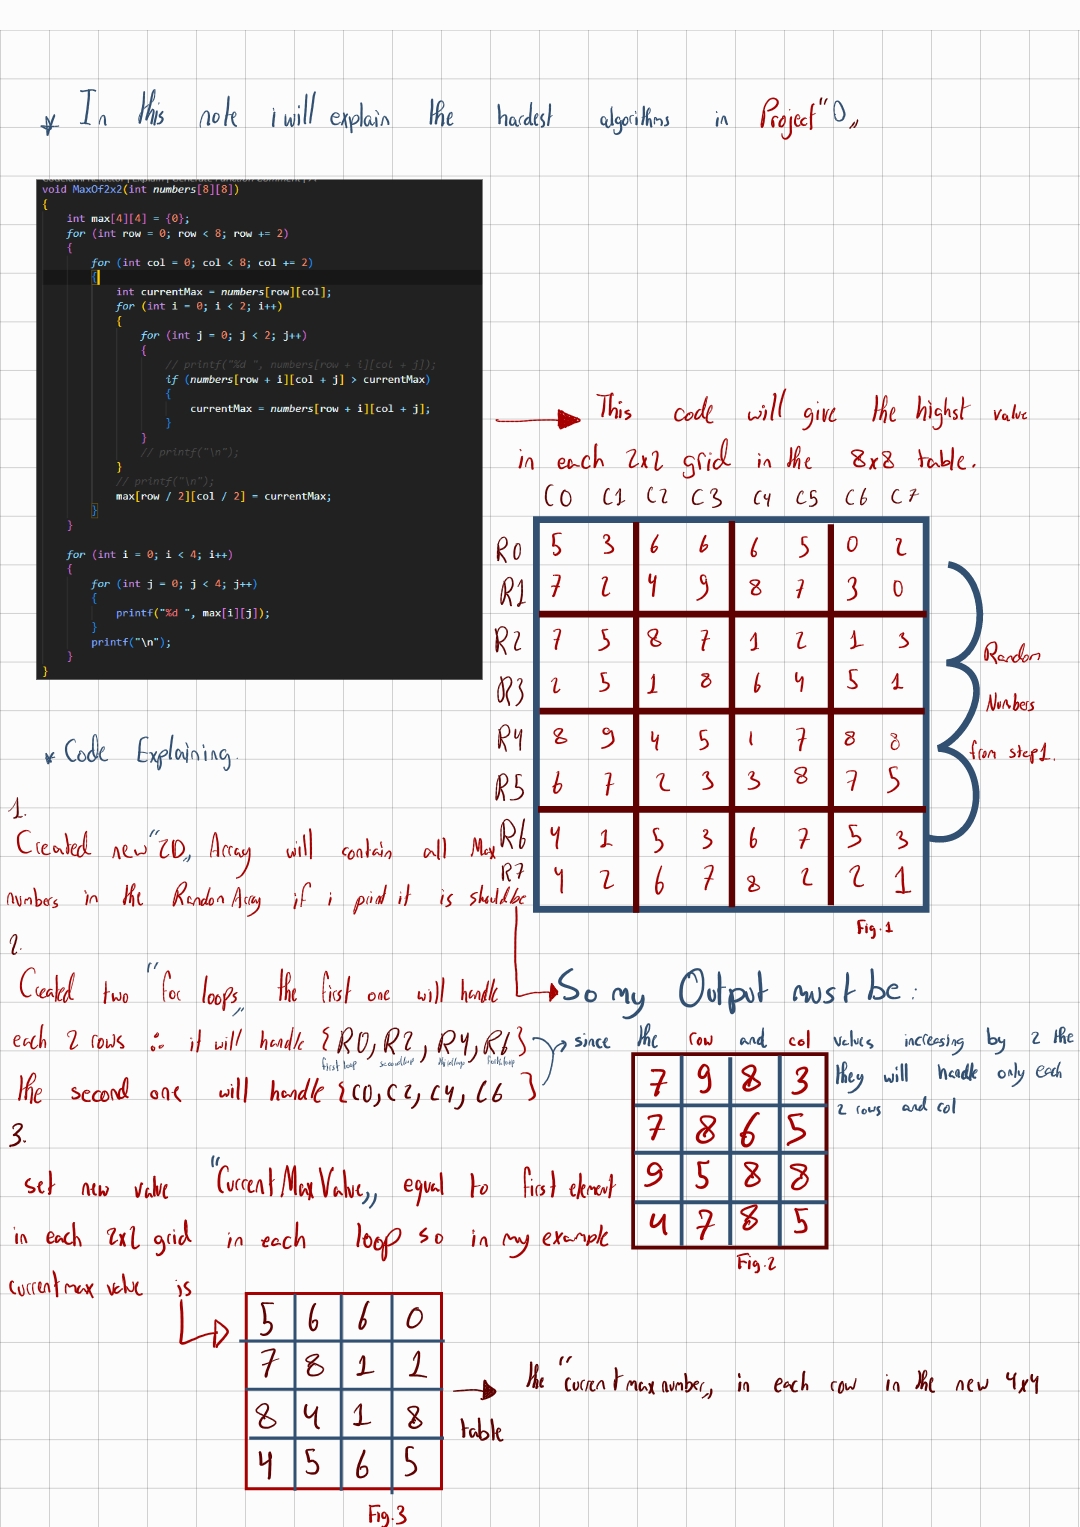 * In this note i will explain the hardest algorithms in Project "0,,
void MaxOf2x2(int numbers[8][8])
{
int max[4][4] = {0};
for (int row = 0; row < 8; row += 2)
{
for (int col = 0; col < 8; col += 2)
{
int currentMax = numbers[row][col];
for (int i = 0; i < 2; i++)
{
for (int j = 0; j < 2; j++)
{
// printf("%d ", numbers[row + i][col + j]);
if (numbers[row + i][col + j] > currentMax)
{
currentMax = numbers[row + i][col + j];
}
}
// printf("\n");
}
// printf("\n");
max[row / 2][col / 2] = currentMax;
}
}
for (int i = 0; i < 4; i++)
{
for (int j = 0; j < 4; j++)
{
printf("%d ", max[i][j]);
}
printf("\n");
}
}
This code will give the highst value
in each 2x2 grid in the 8x8 table.
C0 C1 C2 C3 C4 C5 C6 C7
R0 5 3 6 6 6 5 0 2
R1 7 2 4 9 8 7 3 0
R2 7 5 8 7 1 2 1 3
R3 2 5 1 8 6 4 5 1
R4 8 9 4 5 1 7 8 8
R5 6 7 2 3 3 8 7 5
R6 4 1 5 3 6 7 5 3
R7 4 2 6 7 8 2 2 1
Fig.1
Random
Numbers
from step1.
* Code Explaining.
1.
Created new "2D,, Array will contain all Max
numbers in the Random Array if i print it is should be
2.
Created two "for loops,, the first one will handle
each 2 rows ∴ it will handle {R0, R2, R4, R6}
first loop second loop
the second one will handle {C0, C2, C4, C6 }
So my Output must be:
since the row and col values increasing by 2 the
they will handle only each
2 rows and col
7 9 8 3
7 8 6 5
9 5 8 8
4 7 8 5
Fig.2
3.
set new value "CurrentMaxValue,, equal to first element
in each 2x2 grid in each loop so in my example
current max value is
5 6 6 0
7 8 1 1
8 4 1 8
4 5 6 5
Fig.3
the "current max number,, in each row in the new 4x4
table